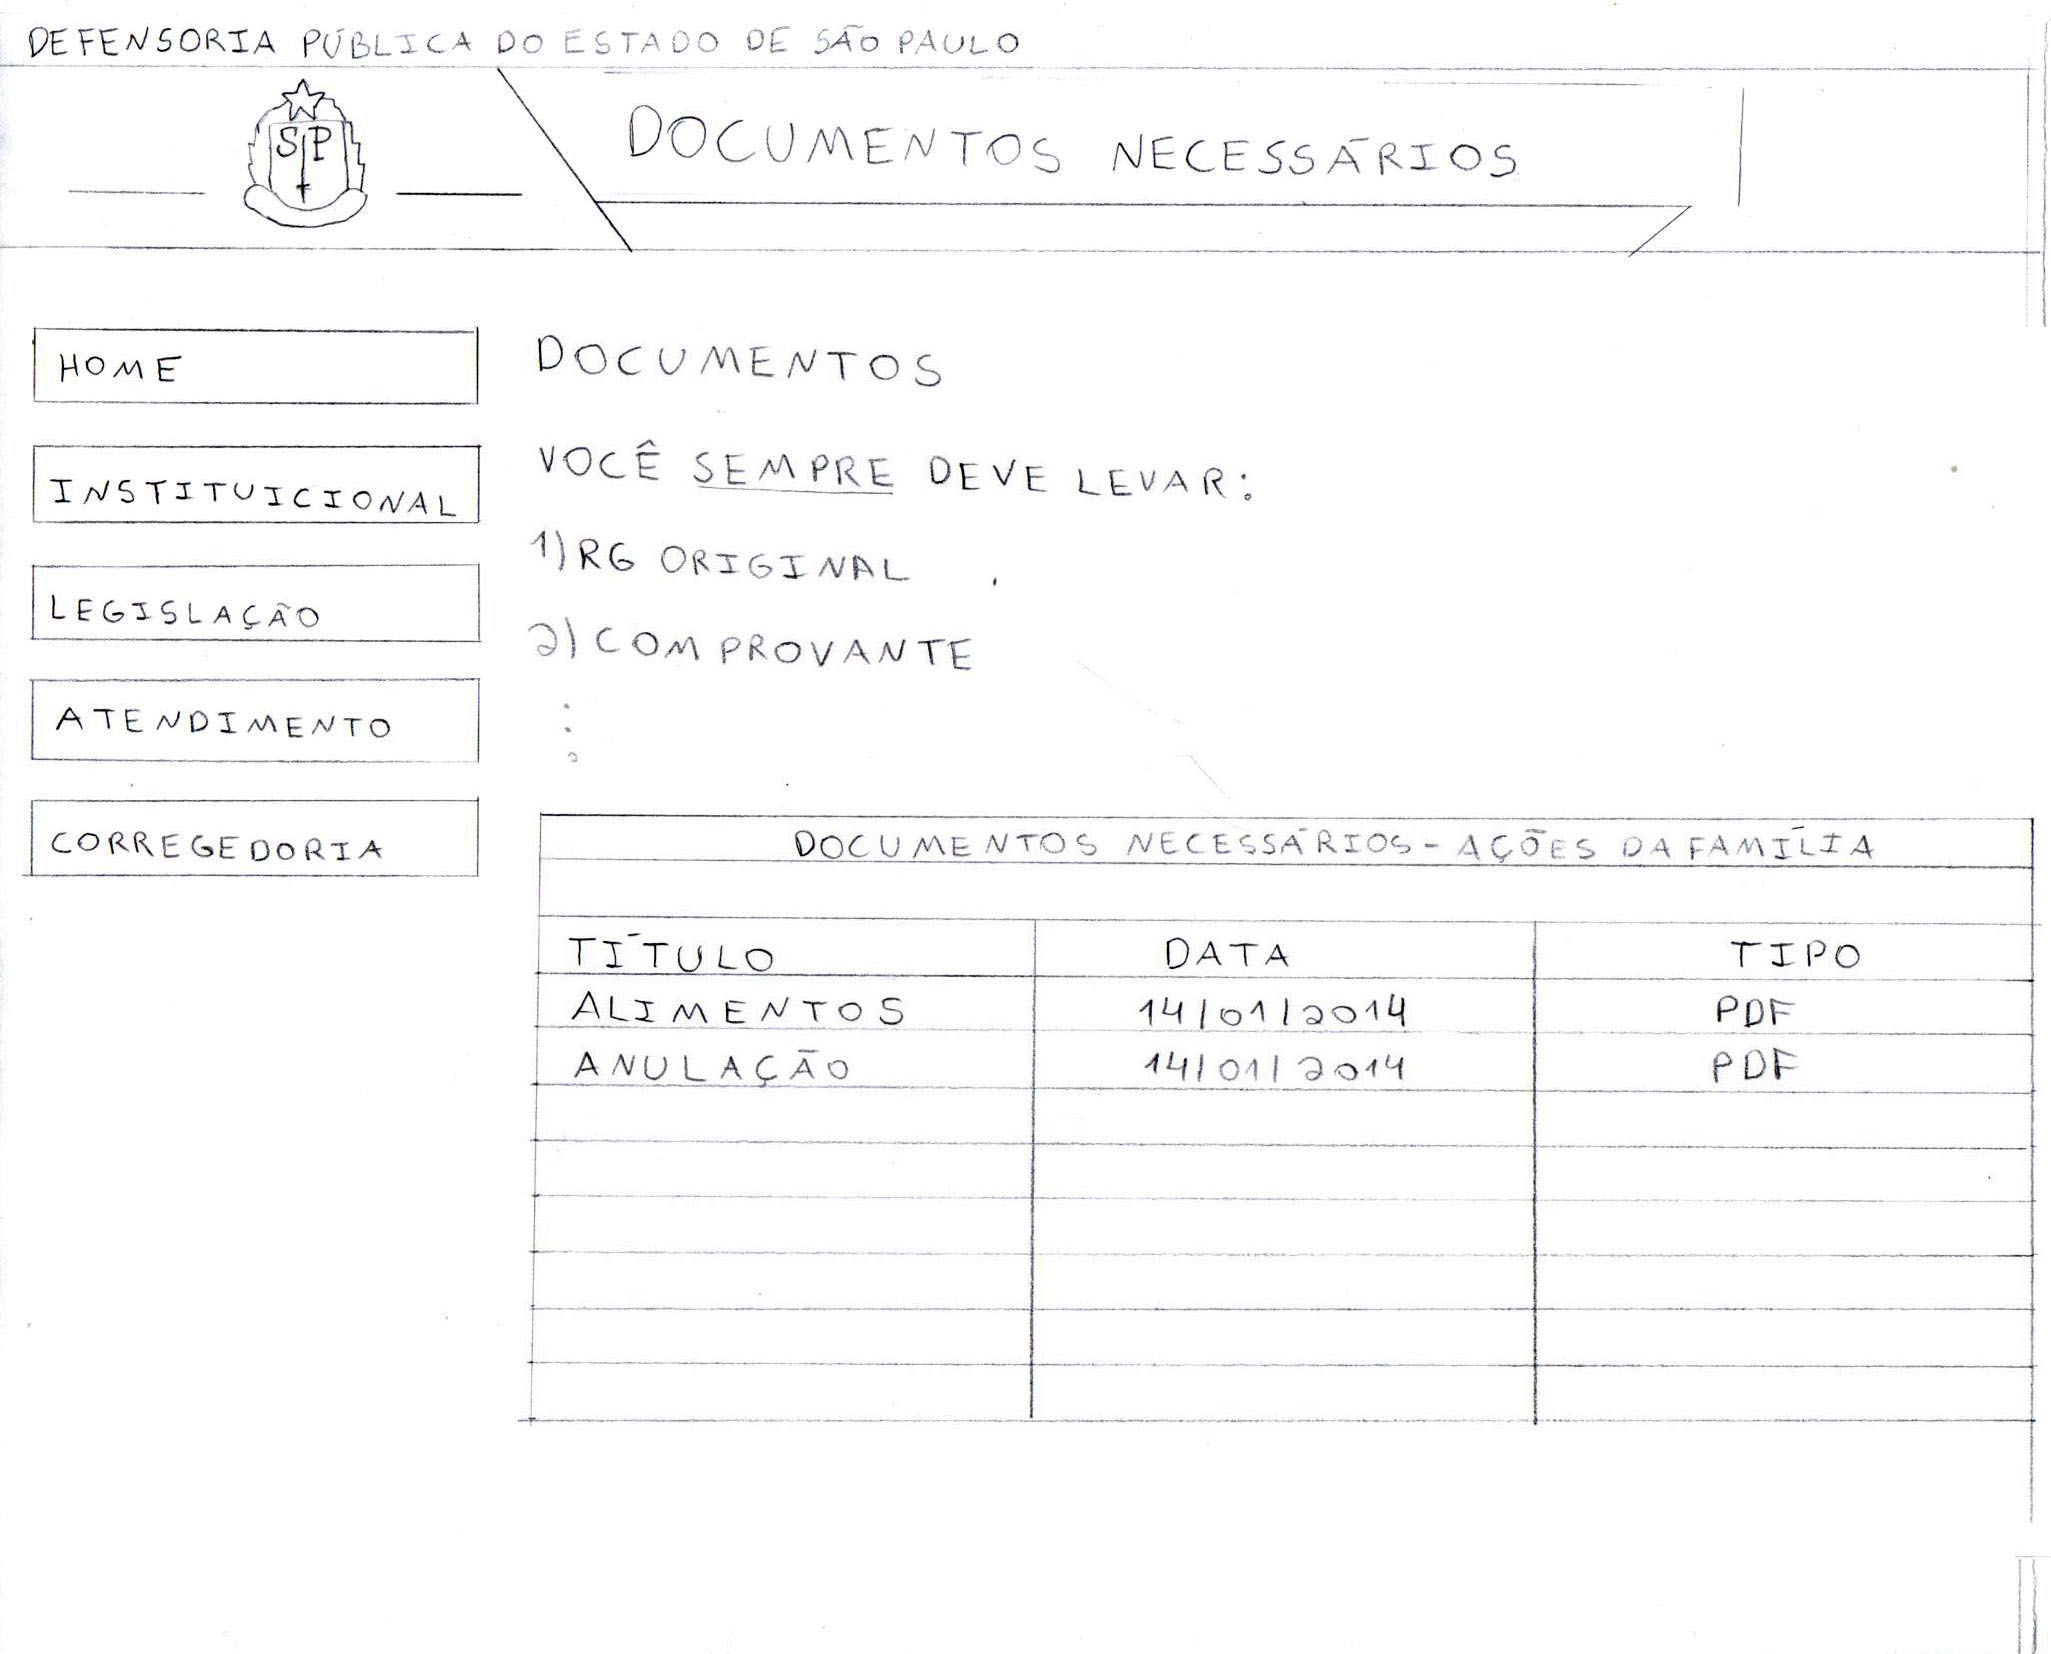 DEFENSORIA PÚBLICA DO ESTADO DE SÃO PAULO
SP
DOCUMENTOS NECESSÁRIOS
HOME
INSTITUICIONAL
LEGISLAÇÃO
ATENDIMENTO
CORREGEDORIA
DOCUMENTOS
VOCÊ SEMPRE DEVE LEVAR:
1) RG ORIGINAL
2) COMPROVANTE
DOCUMENTOS NECESSÁRIOS - AÇÕES DA FAMÍLIA
TÍTULO DATA TIPO
ALIMENTOS 14/01/2014 PDF
ANULAÇÃO 14/01/2014 PDF